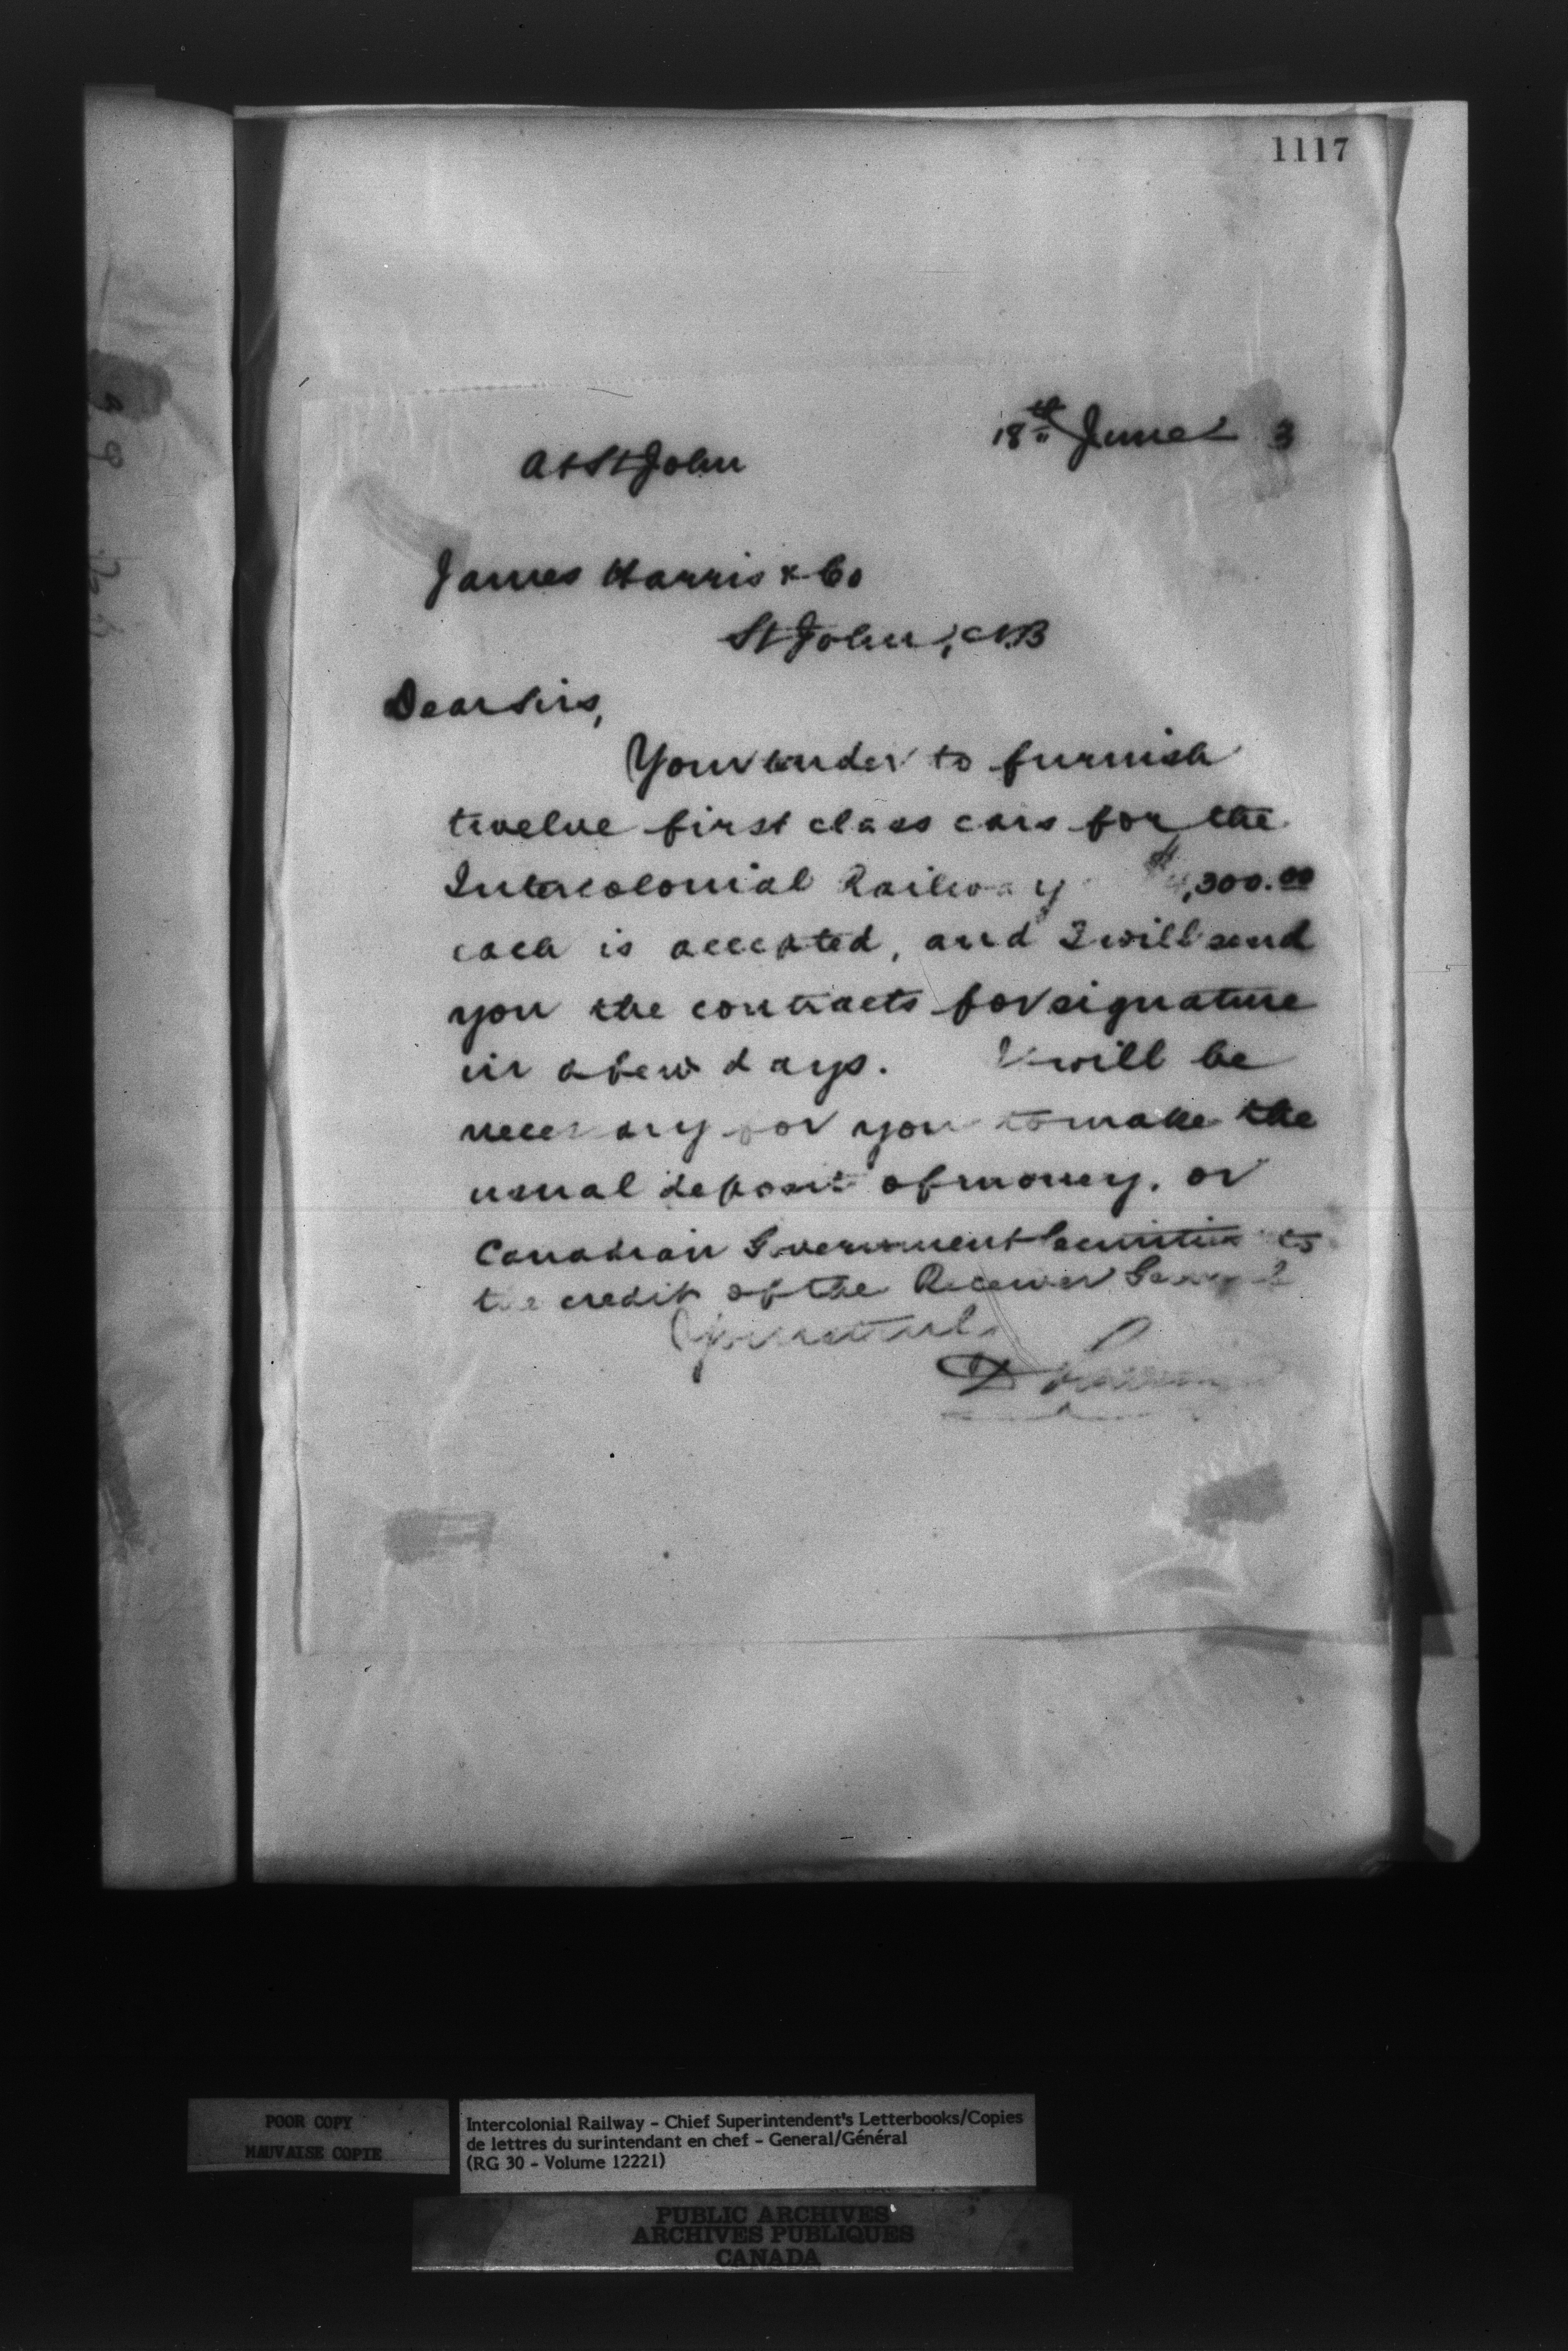 1117
18th June 3
At St John
James Harris & Co
St John, N.B
Dear Sirs,
Your tender to furnish
twelve first class cars for the
Intercolonial Railway $4,300.00
each is accepted, and I will send
you the contracts for signature
in a few days. It will be
necessary for you to make the
usual deposit of money, or
Canadian Government Securities to
the credit of the Receiver General
Yours truly
D
POOR COPY
MAUVAISE COPIE
Intercolonial Railway - Chief Superintendent's Letterbooks/Copies
de lettres du surintendant en chef - General/Général
(RG 30 - Volume 12221)
PUBLIC ARCHIVES
ARCHIVES PUBLIQUES
CANADA